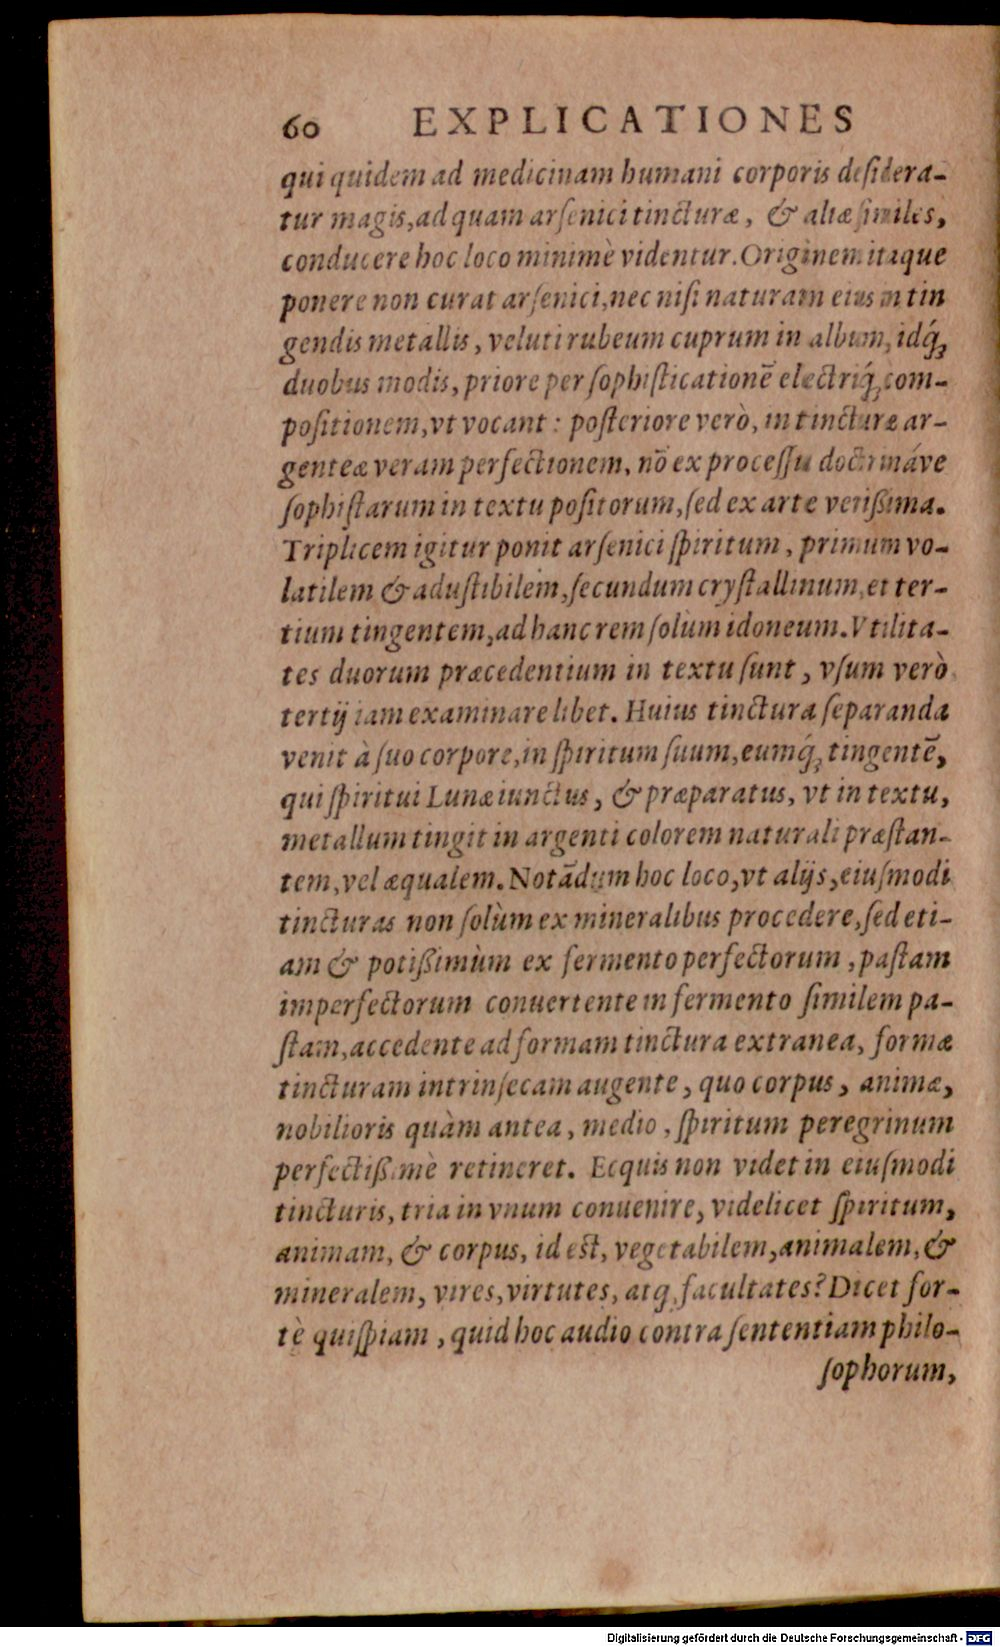 60 EXPLICATIONES
qui quidem ad medicinam humani corporis deſidera-
tur magis, ad quam arſenici tincturæ, & aliæ ſimiles,
conducere hoc loco minimè videntur. Originem itaque
ponere non curat arſenici, nec niſi naturam eius in tin
gendis metallis, veluti rubeum cuprum in album, idq́ꝫ
duobus modis, priore per ſophiſticationē electriq́ꝫ com-
poſitionem, vt vocant : poſteriore verò, in tincturæ ar-
genteæ veram perfectionem, nō ex proceſſu doctrináve
ſophiſtarum in textu poſitorum, ſed ex arte verißima.
Triplicem igitur ponit arſenici ſpiritum, primum vo-
latilem & aduſtibilem, ſecundum cryſtallinum, et ter-
tium tingentem, ad hanc rem ſolùm idoneum. Vtilita-
tes duorum præcedentium in textu ſunt, vſum verò
tertij iam examinare libet. Huius tinctura ſeparanda
venit à ſuo corpore, in ſpiritum ſuum, eumq́ꝫ tingentē,
qui ſpiritui Lunæ iunctus, & præparatus, vt in textu,
metallum tingit in argenti colorem naturali præſtan-
tem, vel æqualem. Notādum hoc loco, vt alijs, eiuſmodi
tincturas non ſolùm ex mineralibus procedere, ſed eti-
am & potißimùm ex fermento perfectorum, paſtam
imperfectorum conuertente in fermento ſimilem pa-
ſtam, accedente ad formam tinctura extranea, formæ
tincturam intrinſecam augente, quo corpus, animæ,
nobilioris quàm antea, medio, ſpiritum peregrinum
perfectißimè retineret. Ecquis non videt in eiuſmodi
tincturis, tria in vnum conuenire, videlicet ſpiritum,
animam, & corpus, id eſt, vegetabilem, animalem, &
mineralem, vires, virtutes, atqꝫ facultates? Dicet for-
tè quiſpiam, quid hoc audio contra ſententiam philo-
ſophorum,
Digitalisierung gefördert durch die Deutsche Forschungsgemeinschaft - DFG